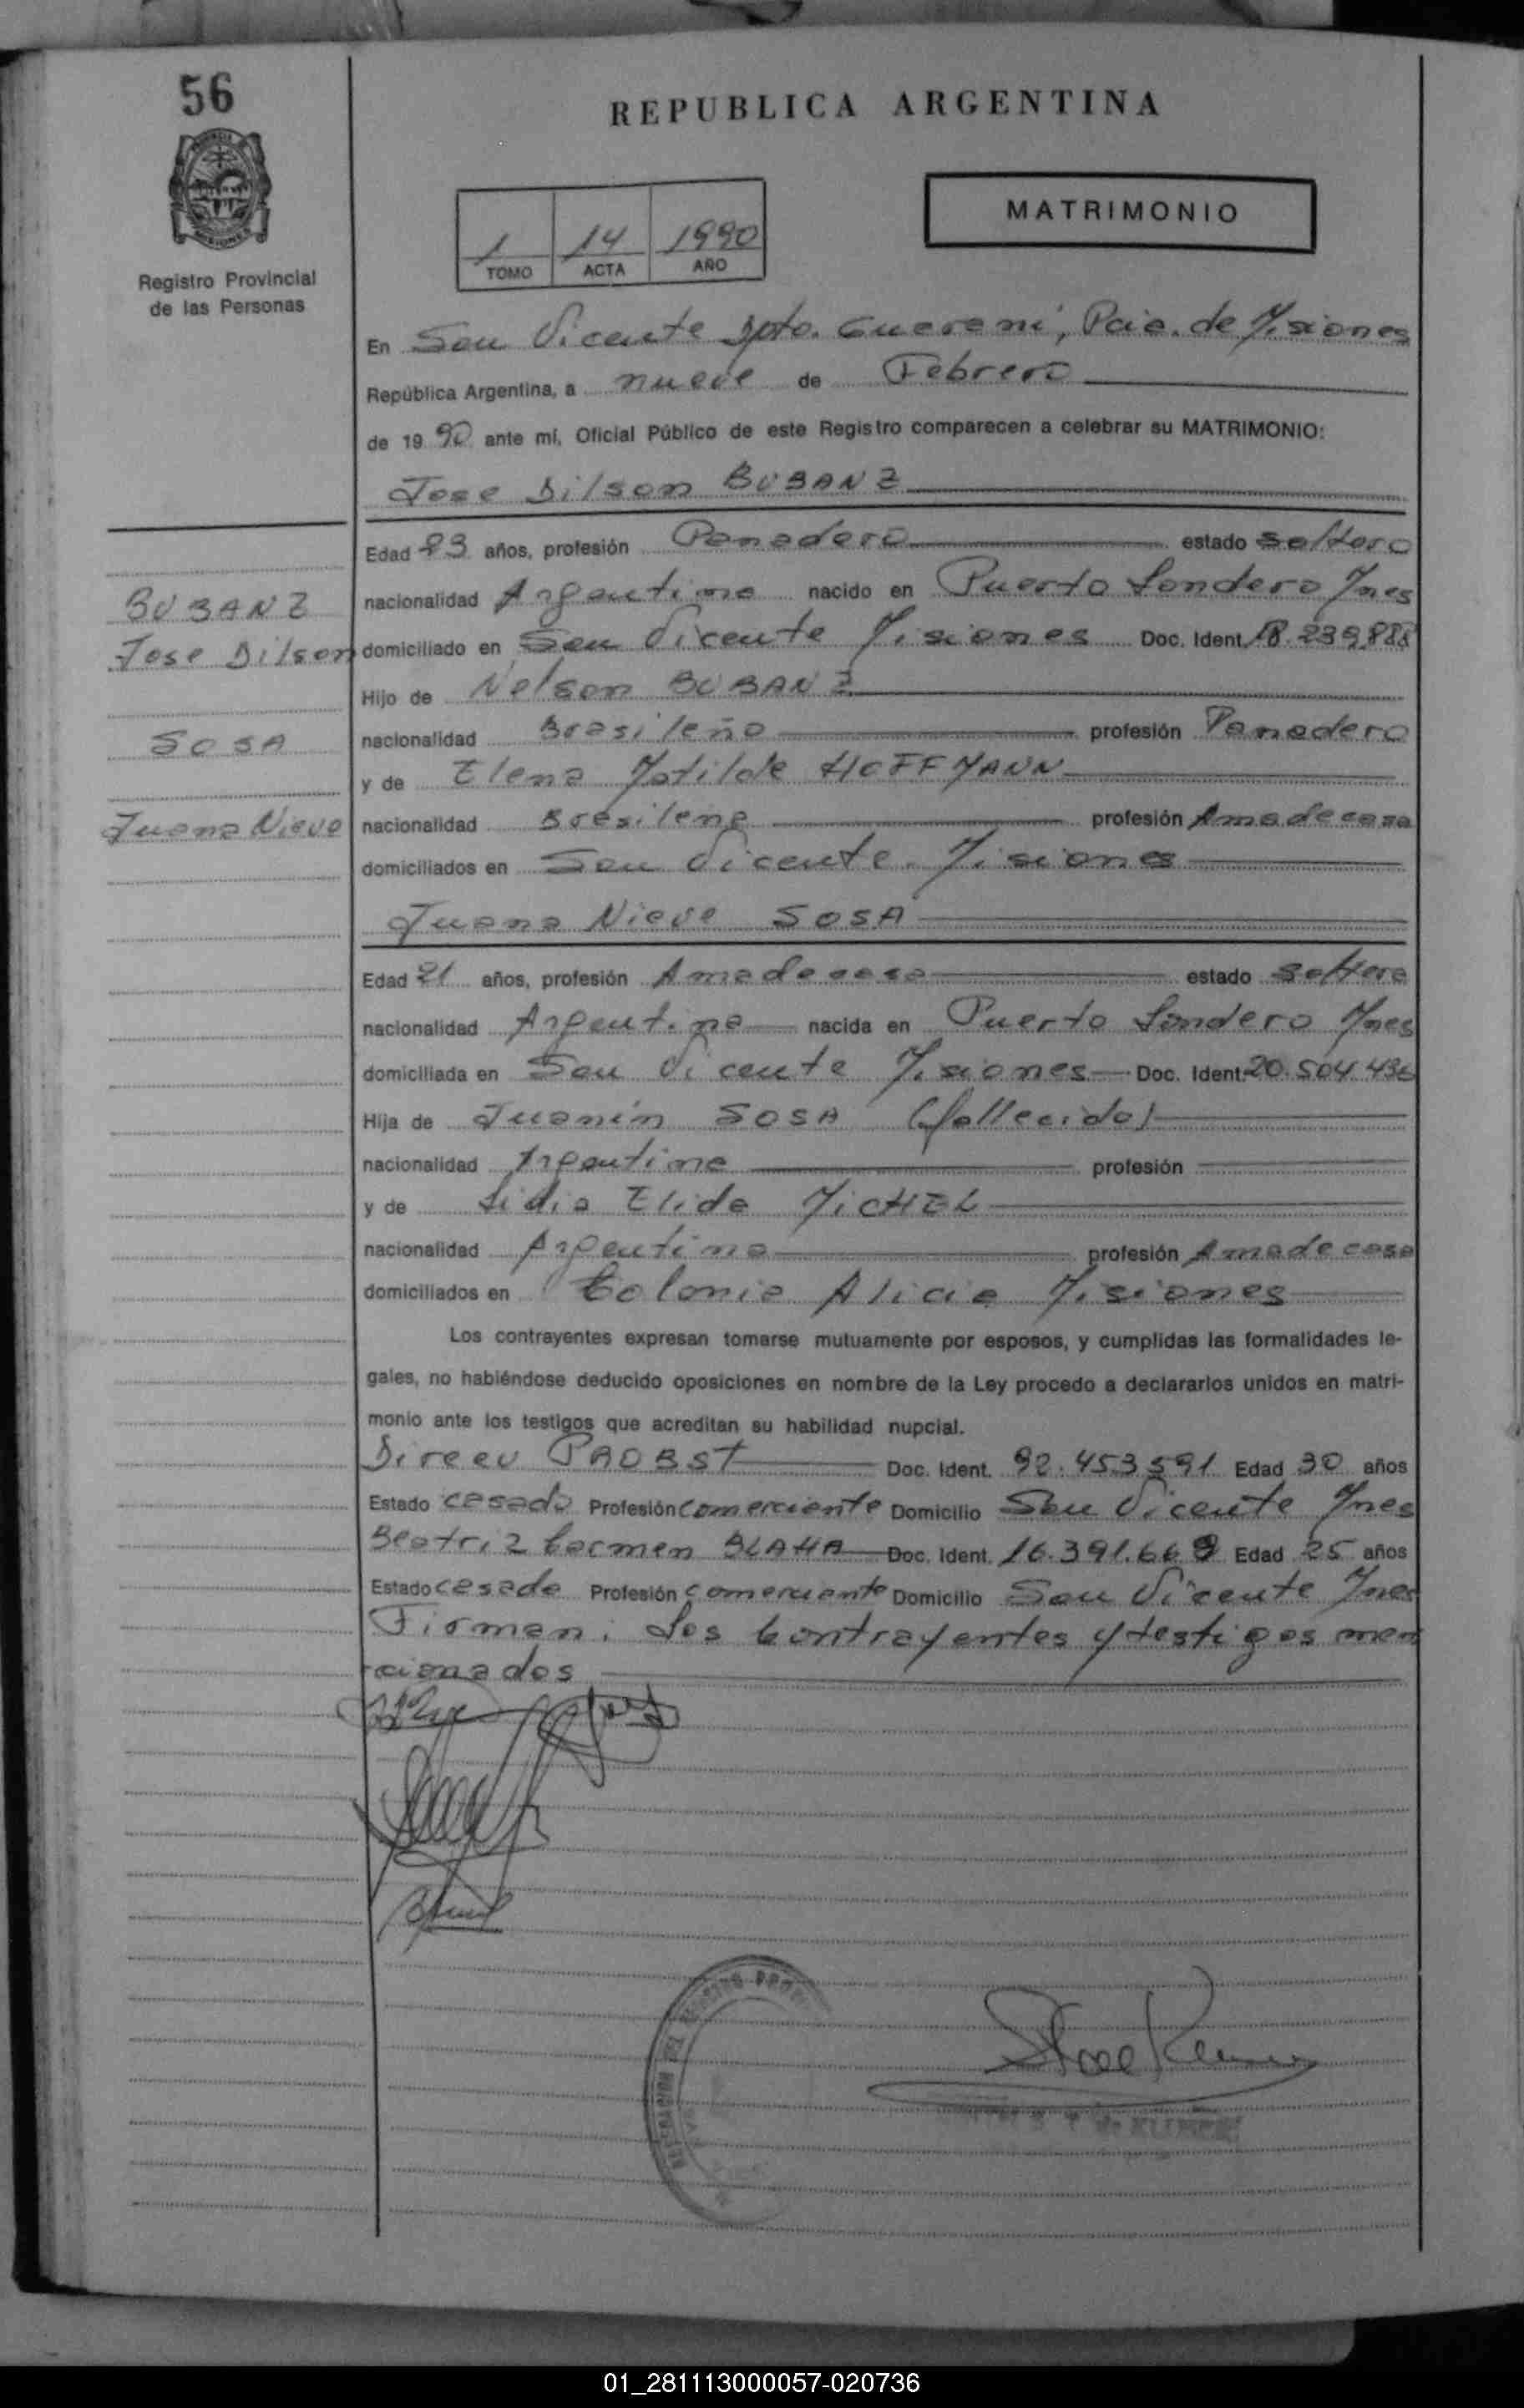 56
REPUBLICA ARGENTINA
MATRIMONIO
1 14 1990
TOMO ACTA AÑO
Registro Provincial
de las Personas
En San Vicente Dpto. Guarani, Pcia. de Misiones
República Argentina, a nueve de Febrero
de 1990 ante mí, Oficial Público de este Registro comparecen a celebrar su MATRIMONIO:
Jose Dilson BUBANZ
Edad 23 años, profesión Panadero estado soltero
BUBANZ
nacionalidad Argentina nacido en Puerto Londero Mnes
Jose Dilson
domiciliado en San Vicente Misiones Doc. Ident. 18.239.888
Hijo de Nelson BUBANZ
SOSA
nacionalidad Brasileño profesión Panadero
y de Elena Matilde HOFFMANN
Juana Nieve
nacionalidad Brasileña profesión Ama de casa
domiciliados en San Vicente. Misiones
Juana Nieve SOSA
Edad 21 años, profesión Ama de casa estado soltera
nacionalidad Argentina nacida en Puerto Londero Mnes
domiciliada en San Vicente Misiones Doc. Ident. 20.504.436
Hija de Juanin SOSA (fallecido)
nacionalidad Argentina profesión
y de Lidia Elida MICHEL
nacionalidad Argentina profesión Ama de casa
domiciliados en Colonia Alicia Misiones
Los contrayentes expresan tomarse mutuamente por esposos, y cumplidas las formalidades le-
gales, no habiéndose deducido oposiciones en nombre de la Ley procedo a declararlos unidos en matri-
monio ante los testigos que acreditan su habilidad nupcial.
Direeu PROBST Doc. Ident. 92.453.591 Edad 30 años
Estado casado Profesión comerciante Domicilio San Vicente Mnes
Beatriz Carmen BLAHA Doc. Ident. 16.391.669 Edad 25 años
Estado casada Profesión comerciante Domicilio San Vicente Mnes
Firman: Los Contrayentes y testigos men
cionados
01_281113000057-020736